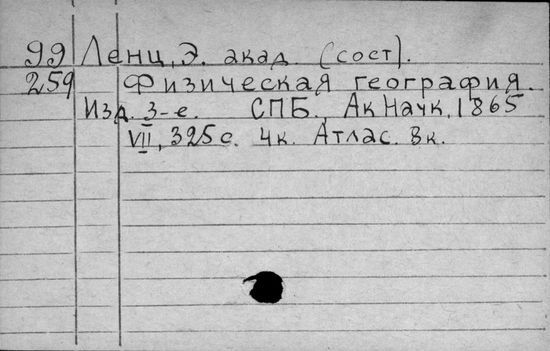 99 Ленц, Э. акад. (сост).
259 Физическая география.
Изд. 3-е. СПБ., Ак Наук, 1865
VII, 325 с. 4 к. Атлас. 8 к.